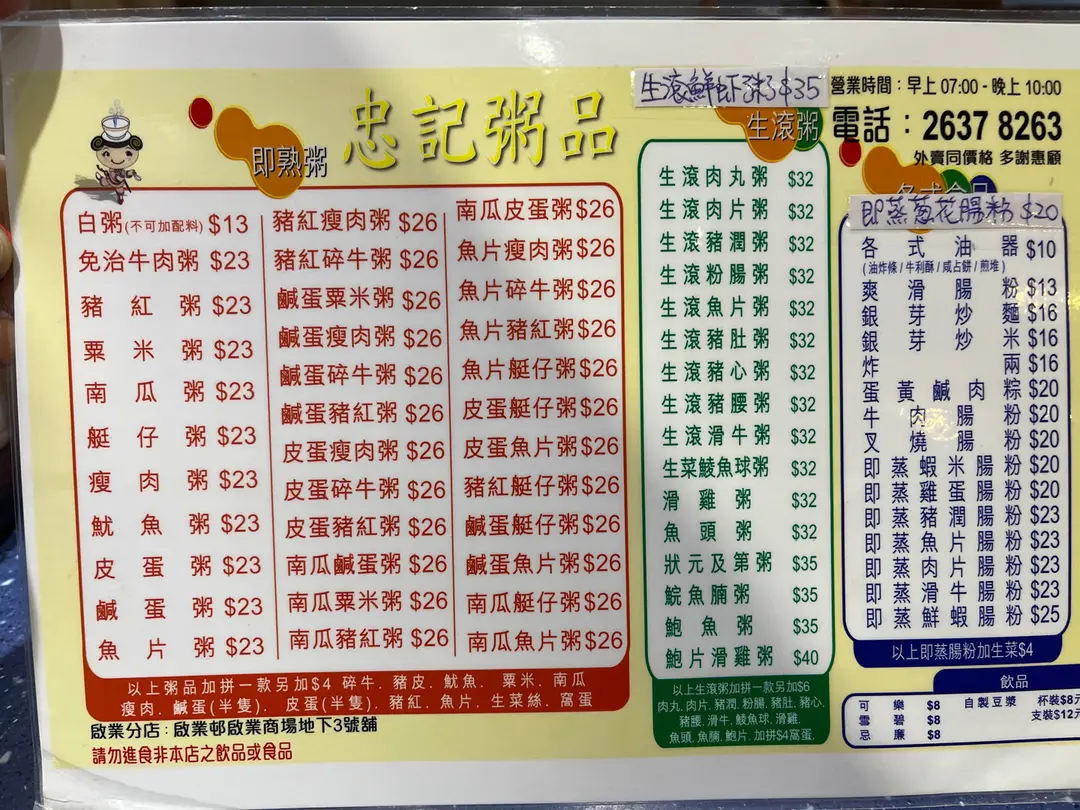 忠記粥品
生滾鮮虾粥$35
營業時間：早上 07:00 - 晚上 10:00
電話：2637 8263
外賣同價格 多謝惠顧
即熟粥
白粥(不可加配料) $13
免治牛肉粥 $23
豬紅粥 $23
粟米粥 $23
南瓜粥 $23
艇仔粥 $23
瘦肉粥 $23
魷魚粥 $23
皮蛋粥 $23
鹹蛋粥 $23
魚片粥 $23
豬紅瘦肉粥 $26
豬紅碎牛粥 $26
鹹蛋粟米粥 $26
鹹蛋瘦肉粥 $26
鹹蛋碎牛粥 $26
鹹蛋豬紅粥 $26
皮蛋瘦肉粥 $26
皮蛋碎牛粥 $26
皮蛋豬紅粥 $26
南瓜鹹蛋粥 $26
南瓜粟米粥 $26
南瓜豬紅粥 $26
南瓜皮蛋粥 $26
魚片瘦肉粥 $26
魚片碎牛粥 $26
魚片豬紅粥 $26
魚片艇仔粥 $26
皮蛋艇仔粥 $26
皮蛋魚片粥 $26
豬紅艇仔粥 $26
鹹蛋艇仔粥 $26
鹹蛋魚片粥 $26
南瓜艇仔粥 $26
南瓜魚片粥 $26
以上粥品加拼一款另加$4 碎牛. 豬皮. 魷魚. 粟米. 南瓜
瘦肉. 鹹蛋(半隻). 皮蛋(半隻). 豬紅. 魚片. 生菜絲. 窩蛋
啟業分店：啟業邨啟業商場地下3號舖
請勿進食非本店之飲品或食品
生滾粥
生滾肉丸粥 $32
生滾肉片粥 $32
生滾豬潤粥 $32
生滾粉腸粥 $32
生滾魚片粥 $32
生滾豬肚粥 $32
生滾豬心粥 $32
生滾豬腰粥 $32
生滾滑牛粥 $32
生菜鯪魚球粥 $32
滑雞粥 $32
魚頭粥 $32
狀元及第粥 $35
鯇魚腩粥 $35
鮑魚粥 $35
鮑片滑雞粥 $40
以上生滾粥加拼一款另加$6
肉丸, 肉片, 豬潤, 粉腸, 豬肚, 豬心,
豬腰, 滑牛, 鯪魚球, 滑雞,
魚頭, 魚腩, 鮑片, 加拼$4窩蛋.
各式食品
即蒸葱花腸粉 $20
各式油器 $10
(油炸條 / 牛利酥 / 咸占餅 / 煎堆)
爽滑腸粉 $13
銀芽炒麵 $16
銀芽炒米 $16
炸兩 $16
蛋黃鹹肉粽 $20
牛肉腸粉 $20
叉燒腸粉 $20
即蒸蝦米腸粉 $20
即蒸雞蛋腸粉 $20
即蒸豬潤腸粉 $23
即蒸魚片腸粉 $23
即蒸肉片腸粉 $23
即蒸滑牛腸粉 $23
即蒸鮮蝦腸粉 $25
以上即蒸腸粉加生菜$4
飲品
可樂 $8
雪碧 $8
忌廉 $8
自製豆漿 杯裝$8元
支裝$12元